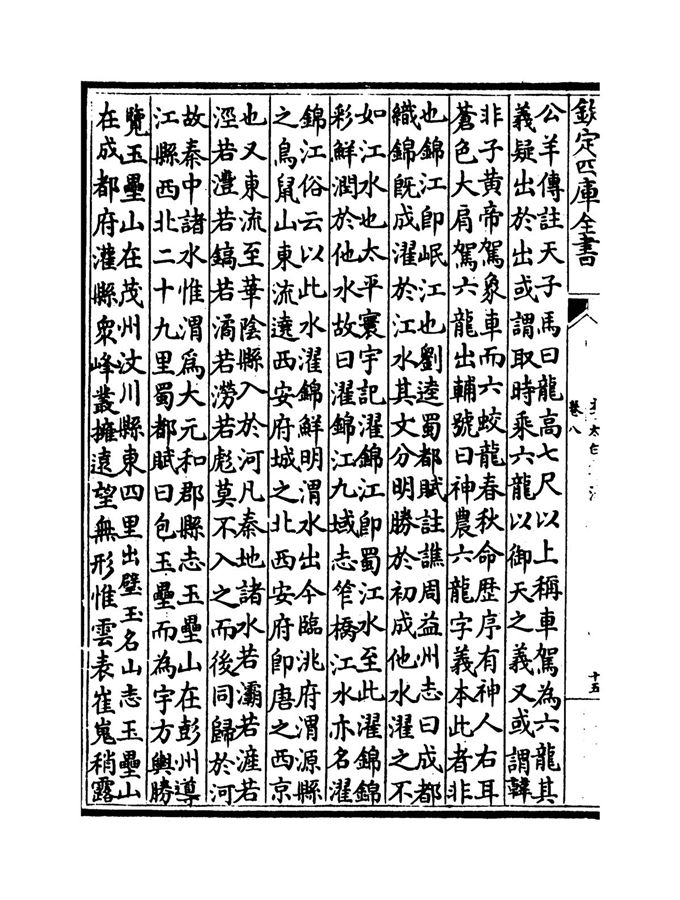 欽定四庫全書
卷八
十五
公羊傳註天子馬曰龍高七尺以上稱車駕為六龍其
義疑出於出或謂取時乘六龍以御天之義又或謂韓
非子黃帝駕象車而六蛟龍春秋命歴序有神人右耳
蒼色大肩駕六龍出輔號曰神農六龍字義本此者非
也錦江即岷江也劉逵蜀都賦註譙周益州志曰成都
織錦既成濯於江水其文分明勝於初成他水濯之不
如江水也太平寰宇記濯錦江即蜀江水至此濯錦錦
彩鮮潤於他水故曰濯錦江九域志笮橋江水亦名濯
錦江俗云以此水濯錦鮮明渭水出今臨洮府渭源縣
之鳥鼠山東流遶西安府城之北西安府即唐之西京
也又東流至華陰縣入於河凡秦地諸水若灞若滻若
涇若灃若鎬若潏若澇若彪莫不入之而後同歸於河
故秦中諸水惟渭爲大元和郡縣志玉壘山在彭州導
江縣西北二十九里蜀都賦曰包玉壘而為宇方輿勝
覽玉壘山在茂州汶川縣東四里出璧玉名山志玉壘山
在成都府灌縣衆峰叢擁遠望無形惟雲表崔嵬稍露